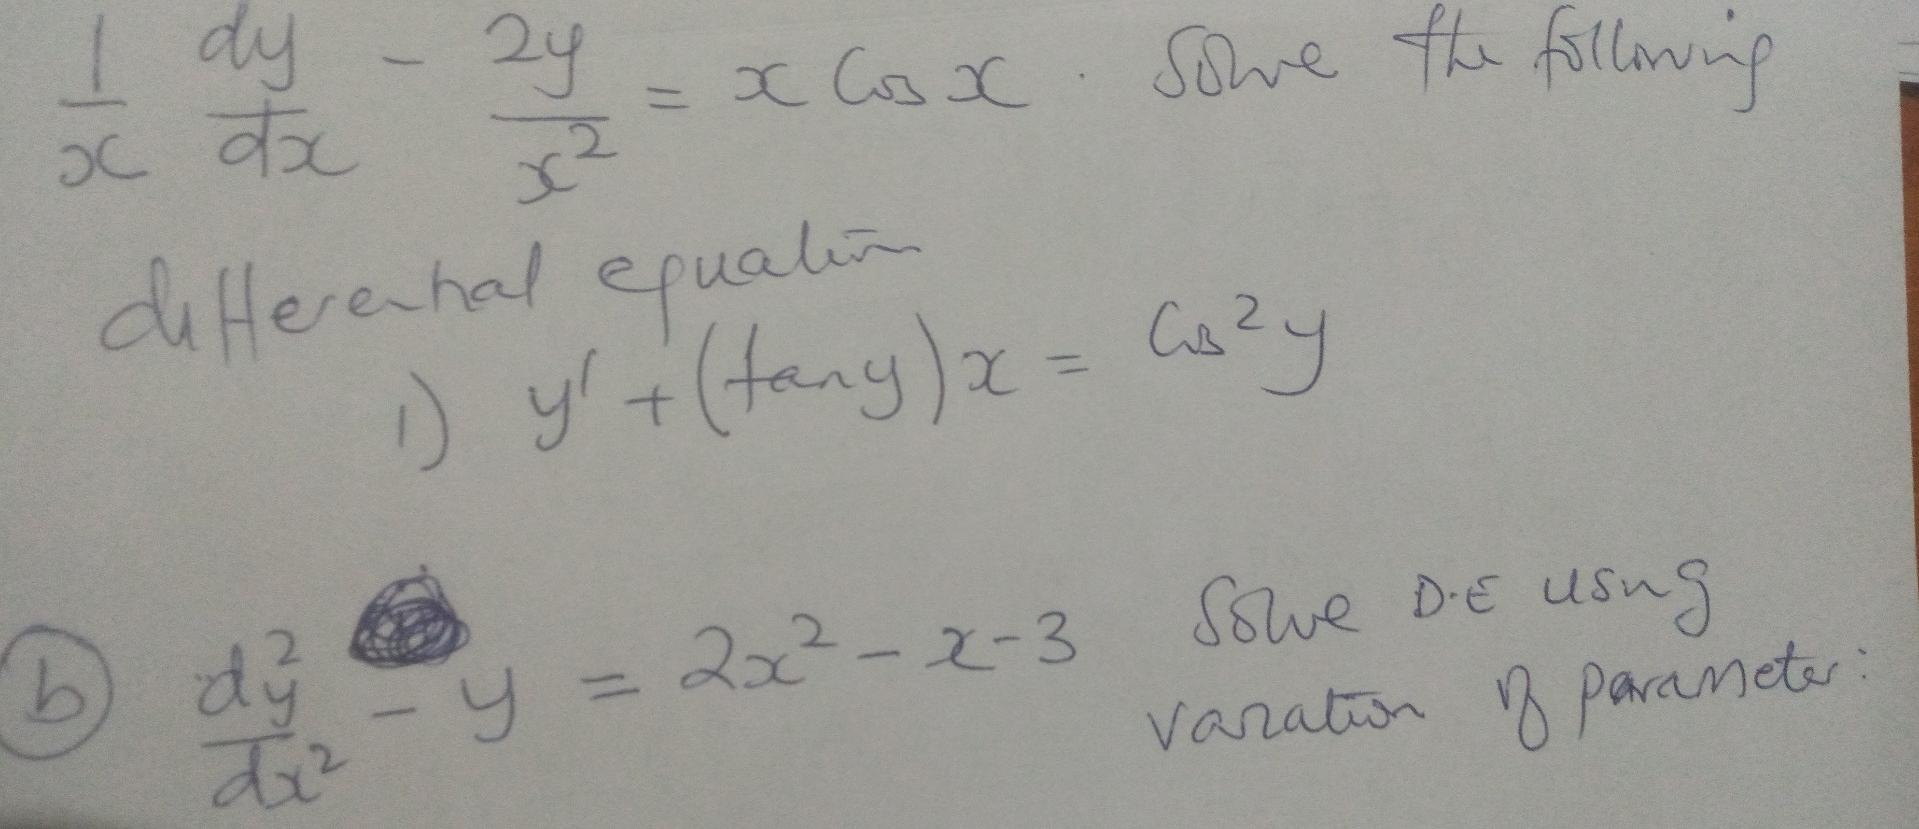 1/x dy/dx - 2y/x² = x Cos x . Solve the following
differential equation
1) y' + (tany)x = Cos²y
b d²y/dx² - y = 2x² - x - 3 Solve D.E using
variation of parameter: